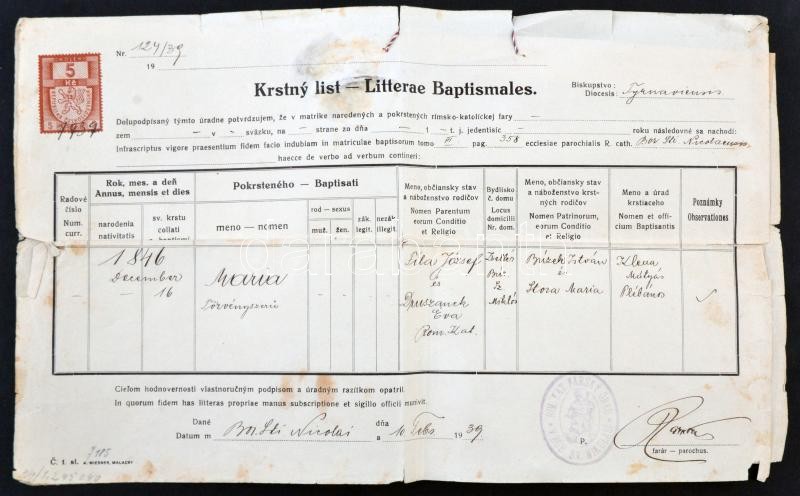 Nr. 124/39
19
KOLEK
5
Kč
1939
Krstný list — Litterae Baptismales.
Biskupstvo:
Diocesis: Tyrnaviensis
Dolupodpísaný týmto úradne potvrdzujem, že v matrike narodených a pokrstených rímsko-katolíckej fary —
zem — v — sväzku, na — strane za dňa — 1 — t. j. jedentisíc — roku následovné sa nachodí:
Infrascriptus vigore praesentium fidem facio indubiam in matriculae baptisatorum tomo III pag. 358 ecclesiae parochialis R. cath. Bor Sti Nicolaensis
haecce de verbo ad verbum contineri:
Radové číslo
Num. curr.
Rok, mes. a deň
Annus, mensis et dies
narodenia
nativitatis
sv. krstu
collati
s. baptismi
Pokrsteného — Baptisati
meno — nomen
rod — sexus
muž.
žen.
zák.
legit.
nezák.
illegit.
Meno, občiansky stav a náboženstvo rodičov
Nomen Parentum eorum Conditio et Religio
Bydlisko č. domu
Locus domicilii Nr. dom.
Meno, občiansky stav a náboženstvo krstných rodičov
Nomen Patrinorum, eorum Conditio et Religio
Meno a úrad krstiaceho
Nomen et officium Baptisantis
Poznámky
Observationes
1846
December
16
Maria
Törvényszerű
József
és
Eva
Rom. Kat.
Sz
Miklós
Búzek István
és
Maria
Klena
Mátyás
Plébános
Cieľom hodnovernosti vlastnoručným podpisom a úradným razítkom opatril.
In quorum fidem has litteras propriae manus subscriptione et sigillo officii munivit.
Dané
Datum m Bor. Sti Nicolai
dňa
a 10 Febr. 1939
P.
farár — parochus.
Č. 1. sl. A. WIESNER, MALACKY
7185